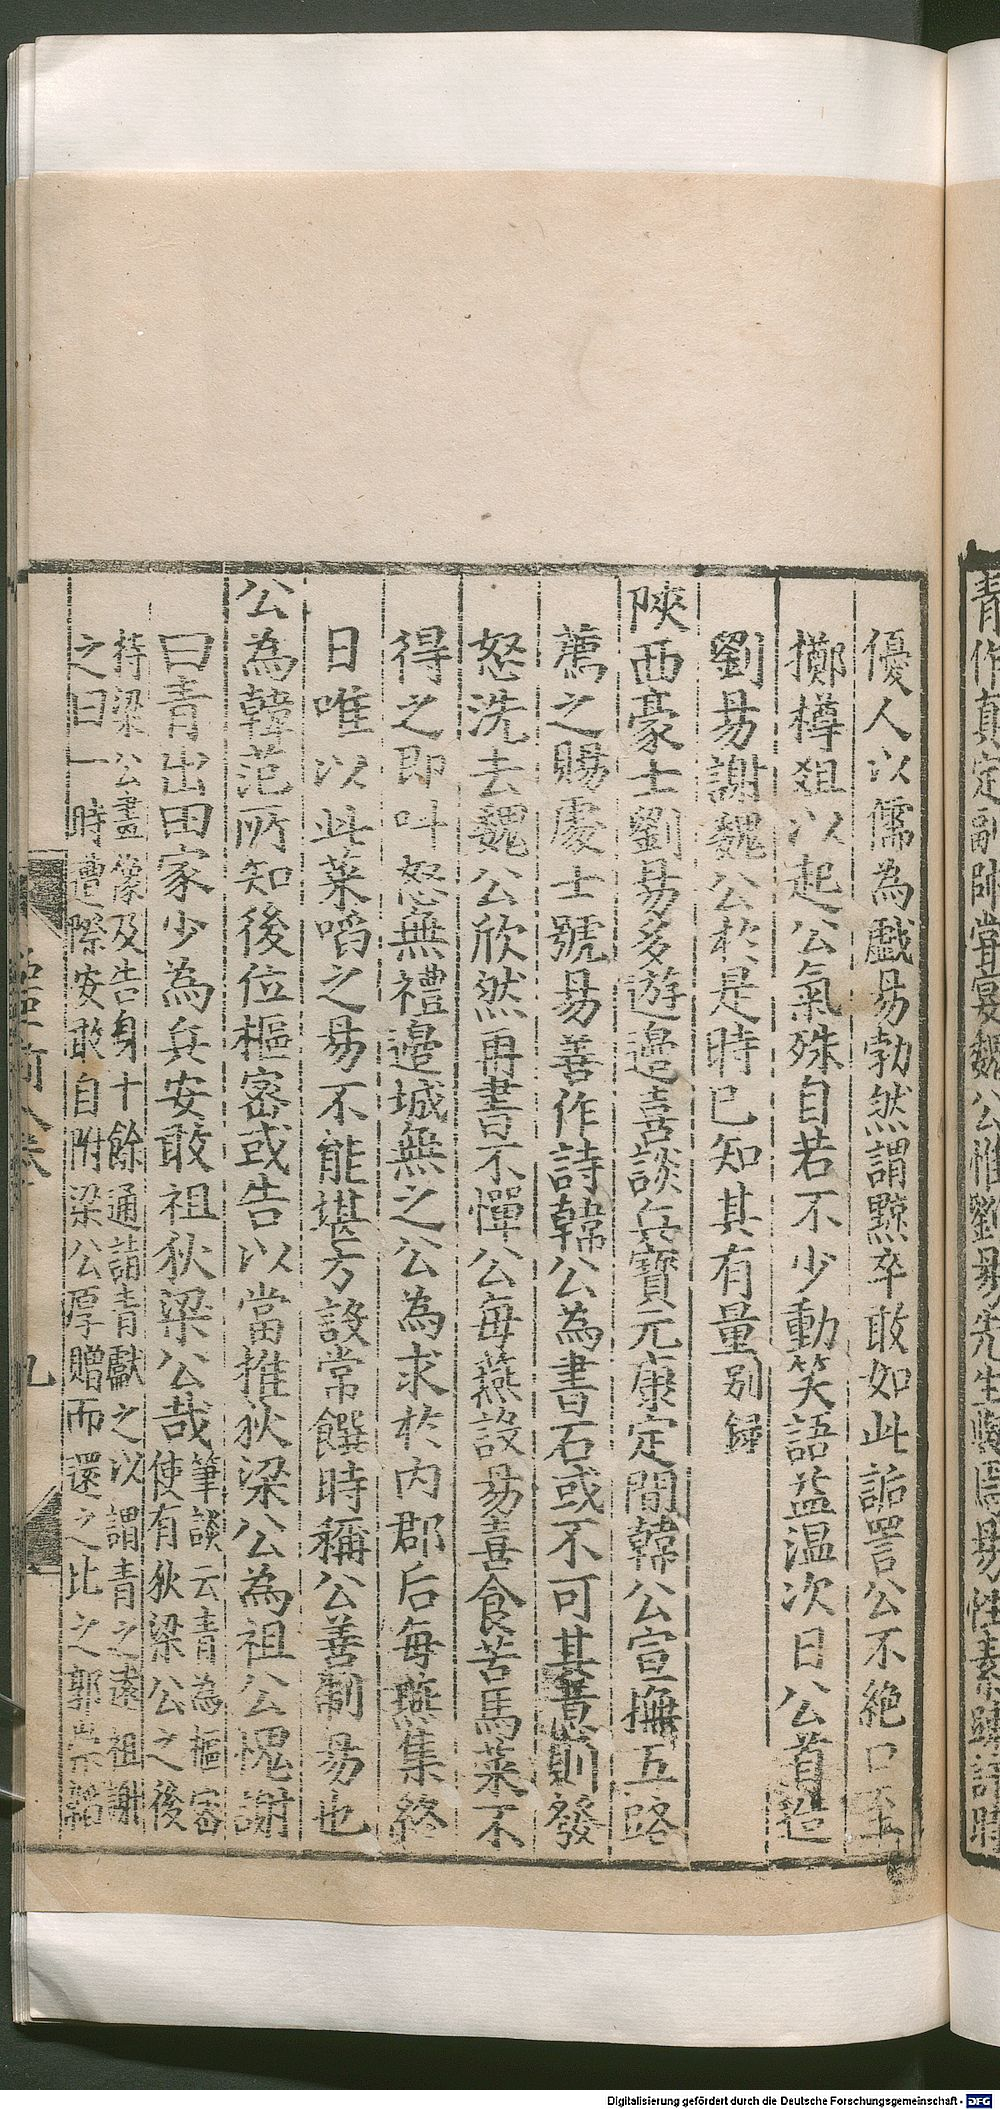 青作真定副帥嘗宴魏公惟劉易先生與焉易性素疎訐時
優人以儒為戲易勃然謂黥卒敢如此詬詈公不絕口至
擲樽俎以起公氣殊自若不少動笑語益温次日公首造
劉易謝魏公於是時已知其有量别録
陝西豪士劉易多遊邉喜談兵寶元康定間韓公宣撫五路
薦之賜處士號易善作詩韓公為書石或不可其意則發
怒洗去魏公欣然再書不憚公每燕設易喜食苦馬菜不
得之即叫怒無禮邉城無之公為求於内郡后每燕集終
日唯以此菜啗之易不能堪方設常饌時稱公善制易也
公為韓范所知後位樞宻或告以當推狄梁公為祖公愧謝
曰青出田家少為兵安敢祖狄梁公哉
筆談云青為樞宻
使有狄梁公之後
持梁公畫像及告身十餘通詣青獻之以謂青之遠祖謝
之曰一時遭際安敢自附梁公厚贈而還之比之郭崇韜
前八卷
九
Digitalisierung gefördert durch die Deutsche Forschungsgemeinschaft - DFG